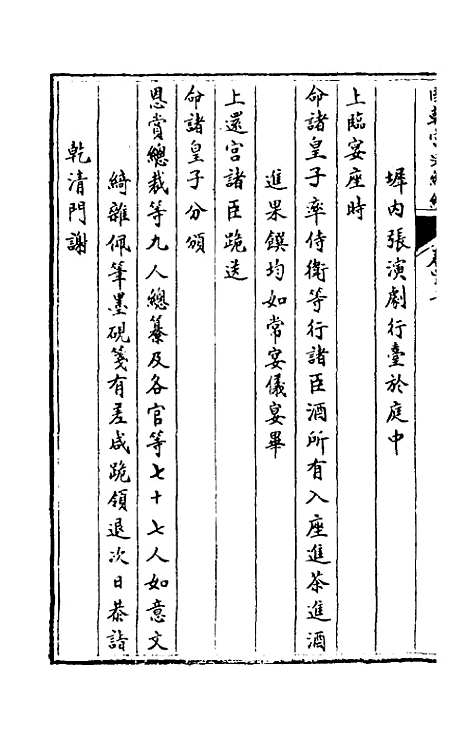 墀內張演劇行臺於庭中
上臨宴座時
命諸皇子率侍衛等行諸臣酒所有入座進茶進酒
進果饌均如常宴儀宴畢
上還宮諸臣跪送
命諸皇子分頒
恩賞總裁等九人總纂及各官等七十七人如意文
綺雜佩筆墨硯箋有差咸跪領退次日恭詣
乾清門謝